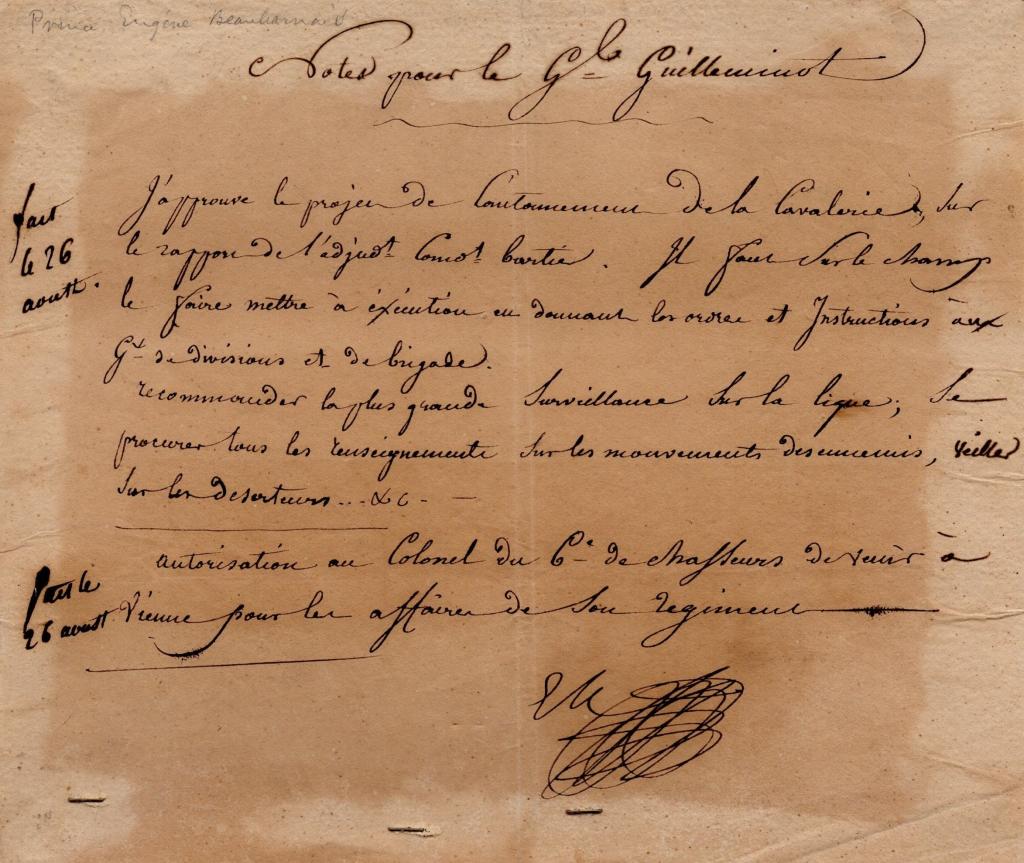 Prince Eugène Beauharnais
Notes pour le G.le Guilleminot
fait
le 26
aoust.
J'approuve le projet de Cantonnement de la Cavalerie, sur
le rapport de l'adjud.t Com.dt . Il faut sur le champ
le faire mettre à éxécution en donnant les ordres et Instructions aux
G.x de divisions et de brigade.
recommander la plus grande Surveillance Sur la ligne; Se
procurer tous les renseignements Sur les mouvements des ennemis, veiller
Sur les deserteurs ... &c -
fait le
26 aoust
autorisation au Colonel du 6.e de chasseurs de venir à
Vienne pour les affaires de son regiment